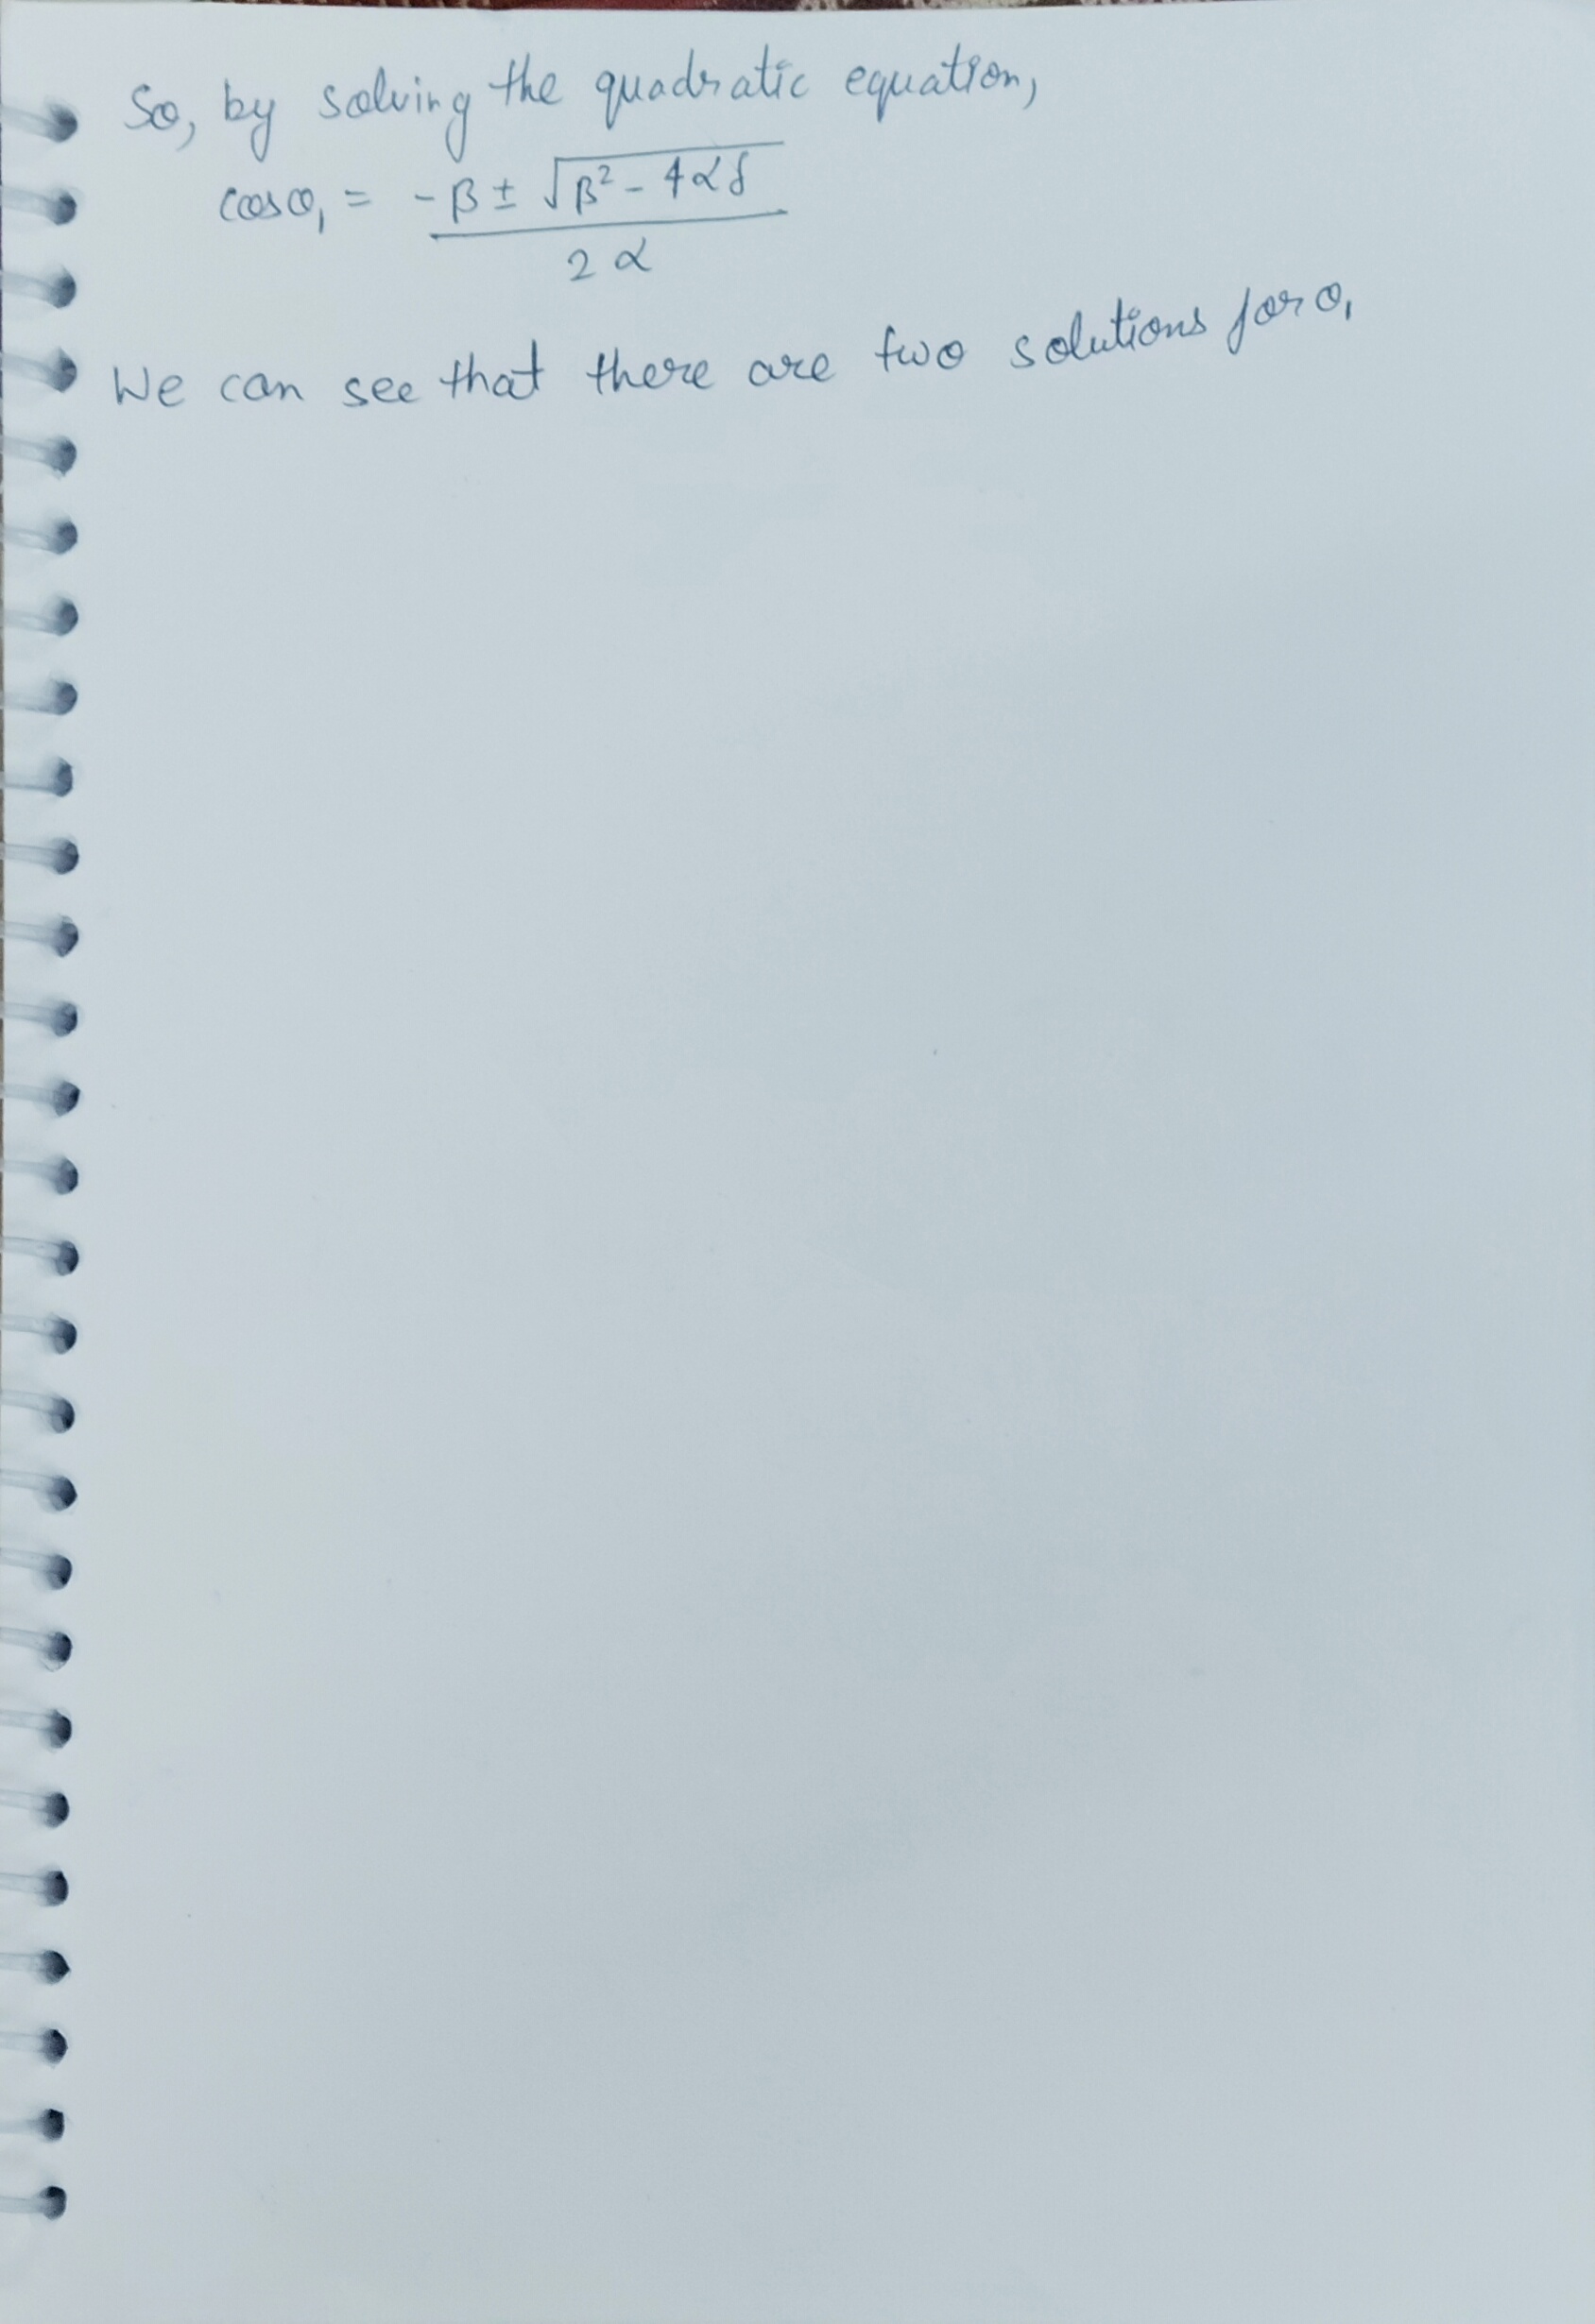 So, by solving the quadratic equation,
cosθ₁ = -β ± √(β² - 4αδ)
2α
We can see that there are two solutions for θ₁